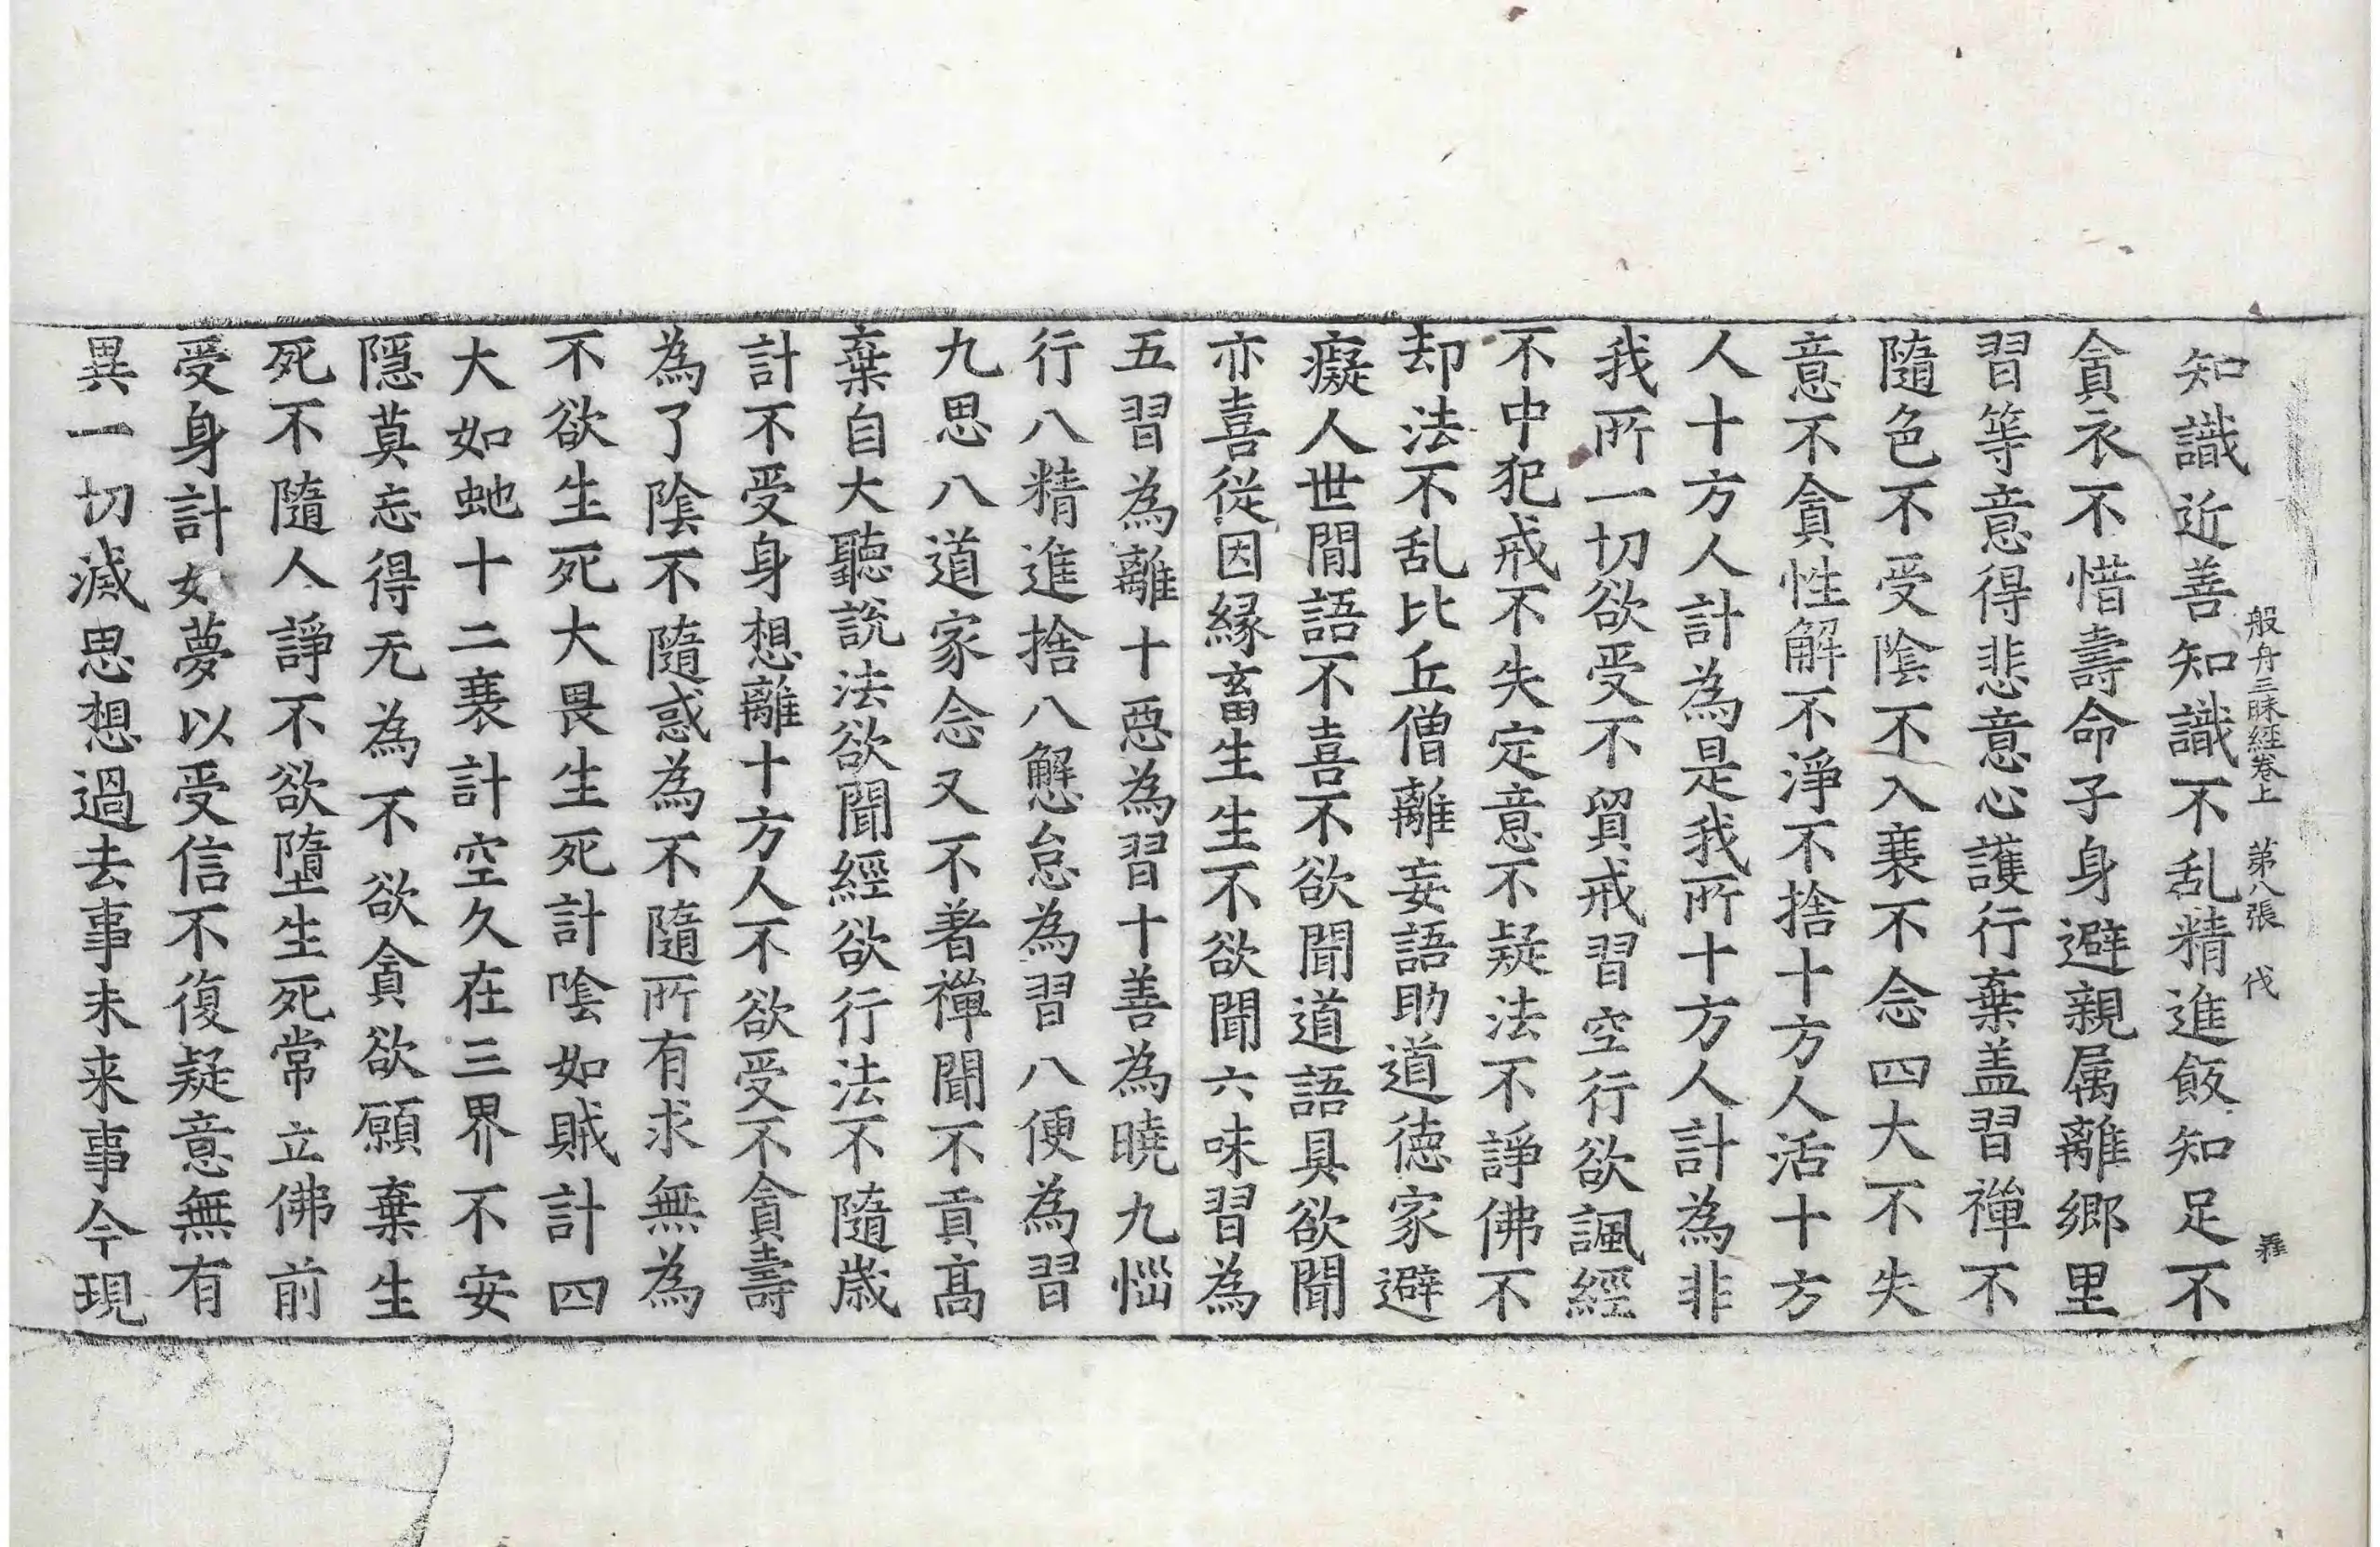 般舟三昧経卷上　第八張　伐
知識近善知識不乱精進飯知足不
貪衣不惜壽命子身避親属離鄉里
習等意得悲意心護行棄盖習禪不
隨色不受陰不入衰不念四大不失
意不貪性解不淨不捨十方人活十方
人十方人計為是我所十方人計為非
我所一切欲受不貿戒習空行欲諷經
不中犯戒不失定意不疑法不諍佛不
却法不乱比丘僧離妄語助道德家避
癡人世間語不喜不欲聞道語具欲聞
亦喜從因縁畜生生不欲聞六味習為
五習為離十惡為習十善為曉九惱
行八精進捨八懈怠為習八便為習
九思八道家念又不著禪聞不貢髙
棄自大聽説法欲聞經欲行法不隨歳
計不受身想離十方人不欲受不貪壽
為了陰不隨惑為不隨所有求無為
不欲生死大畏生死計陰如賊計四
大如虵十二衰計空久在三界不安
隱莫忘得无為不欲貪欲願棄生
死不隨人諍不欲墮生死常立佛前
受身計如夢以受信不復疑意無有
異一切滅思想過去事未来事今現